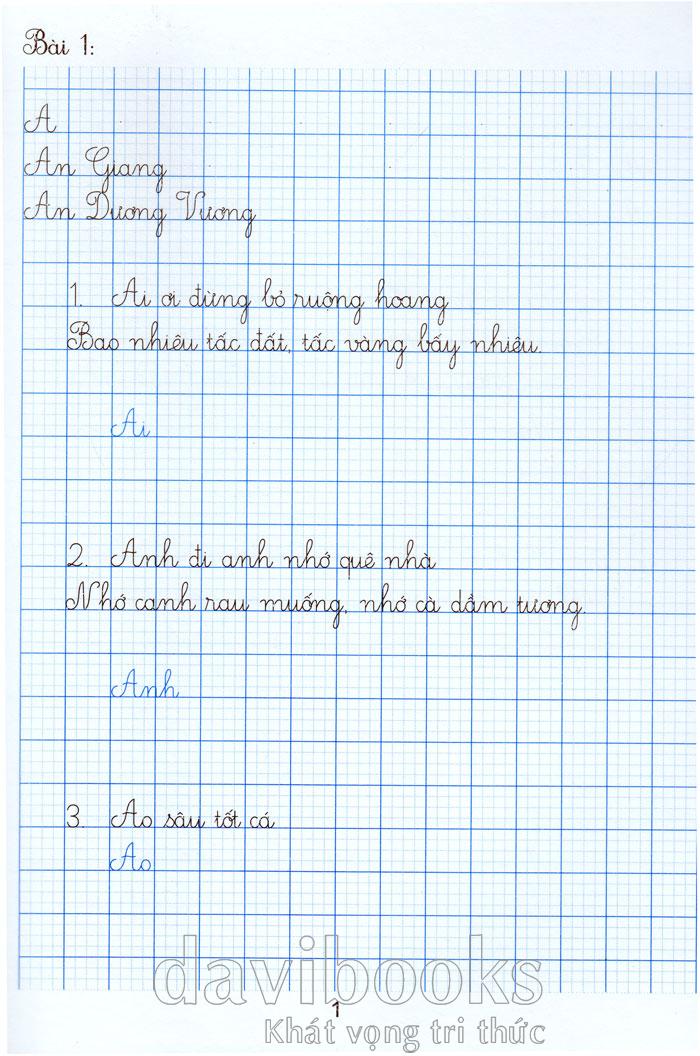 Bài 1:
A
An Giang
An Dương Vương
1. Ai ơi đừng bỏ ruộng hoang
Bao nhiêu tấc đất, tấc vàng bấy nhiêu.
Ai
2. Anh đi anh nhớ quê nhà
Nhớ canh rau muống, nhớ cà dầm tương.
Anh
3. Ao sâu tốt cá
Ao
davibooks
1
Khát vọng tri thức